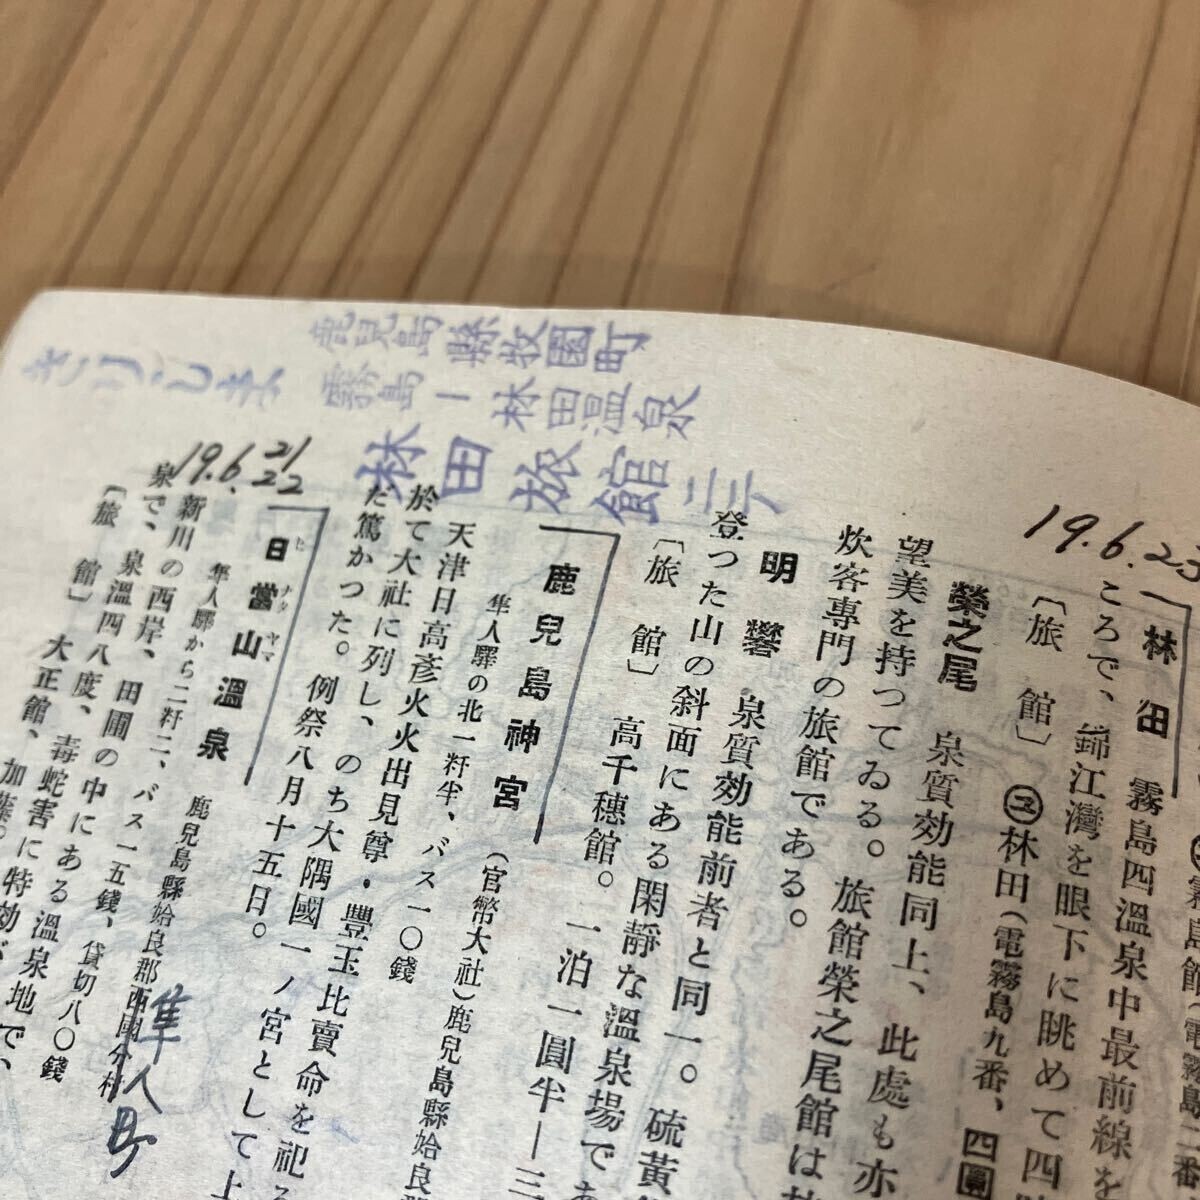 鹿児島縣牧園町
霧島ー林田溫泉
林田旅館
きりしま
19.6.23
19.6.21
22
霧島館(電霧島二番
林田 霧島四溫泉中最前線を
ころで、錦江灣を眼下に眺めて四
〔旅館〕 ㋓林田(電霧島九番、四圓
榮之尾 泉質効能同上、此處も亦
望美を持つてゐる。旅館榮之尾館は
炊客專門の旅館である。
明礬 泉質効能前者と同一。硫黃
登つた山の斜面にある閑靜な溫泉場であ
〔旅館〕 高千穗館。一泊一圓半―三
鹿兒島神宮 (官幣大社)鹿兒島縣姶良郡
隼人驛の北一粁半、バス一〇錢
天津日高彥火火出見尊・豐玉比賣命を祀
於て大社に列し、のち大隅國一ノ宮として上
だ篤かつた。例祭八月十五日。
日當山溫泉 鹿兒島縣姶良郡西國分村
ヒナタヤマ
隼人驛から二粁二、バス一五錢、貸切八〇錢
新川の西岸、田圃の中にある溫泉地で、
泉で、泉溫四八度、毒蛇害に特効が
〔旅館〕 大正館、加藤。
隼人町